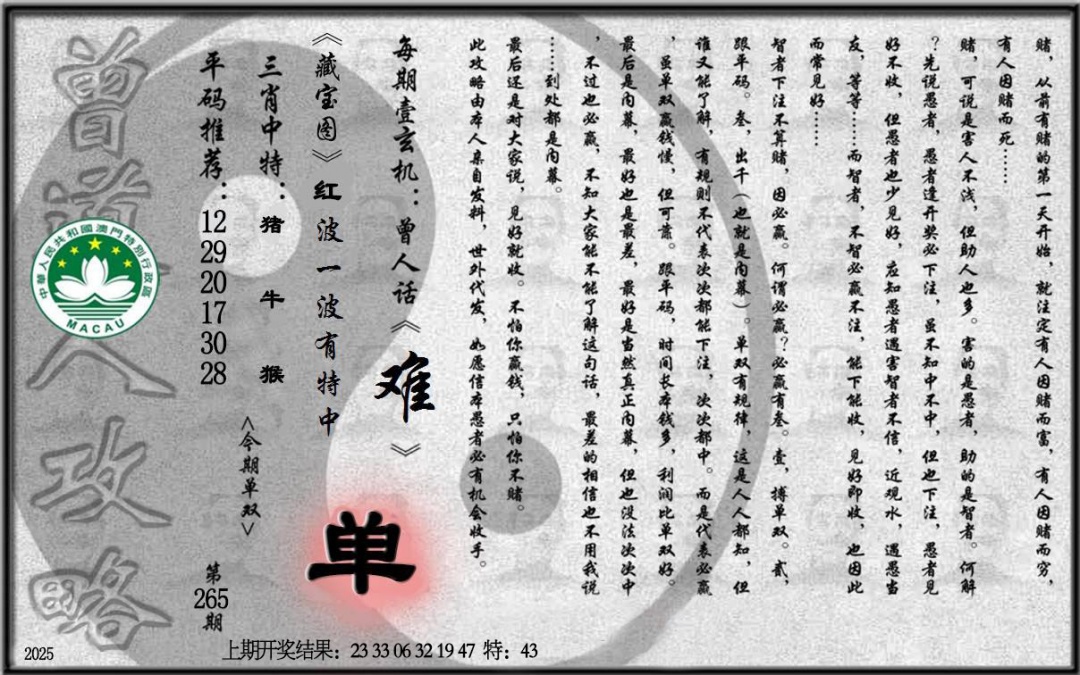 赌，从前有赌的第一天开始，就注定有人因赌而富，有人因赌而穷，
有人因赌而死……
赌，可说是害人不浅，但助人也多。害的是愚者，助的是智者。何解
？先说愚者，愚者逢开奖必下注，虽不知中不中，但也下注，愚者见
好不收，但愚者也少见好，应知愚者遇害智者不信，近观水，遇愚当
友，等等……而智者，不智必赢不注，能下能收，见好即收，也因此
而常见好……
智者下注不算赌，因必赢。何谓必赢？必赢有叁。壹，搏单双。贰，
跟单码。叁，出千（也就是内幕）。单双有规律，这是人人都知，但
谁又能了解，有规则不代表次次都能下注，次次都中。而是代表必赢
，虽单双赢钱慢，但可靠。跟单码，时间长本钱多，利润比单双好。
最后是内幕，最好也是最差，最好是当然真正内幕，但也没法次次中
，不过也必赢，不知大家能不能了解这句话，最差的相信也不用我说
……到处都是内幕。
最后还是对大家说，见好就收。不怕你赢钱，只怕你不赌。
此攻略由本人亲自发料，世外代发，如愿信本愚者必有机会收手。
每期壹玄机：曾人话《难》
《藏宝图》红波一波有特中
三肖中特：猪 牛 猴
平码推荐：12 29 20 17 30 28
<今期单双>
单
第265期
曾道人攻略
中華人民共和國澳門特別行政區
MACAU
2025
上期开奖结果：23 33 06 32 19 47 特：43